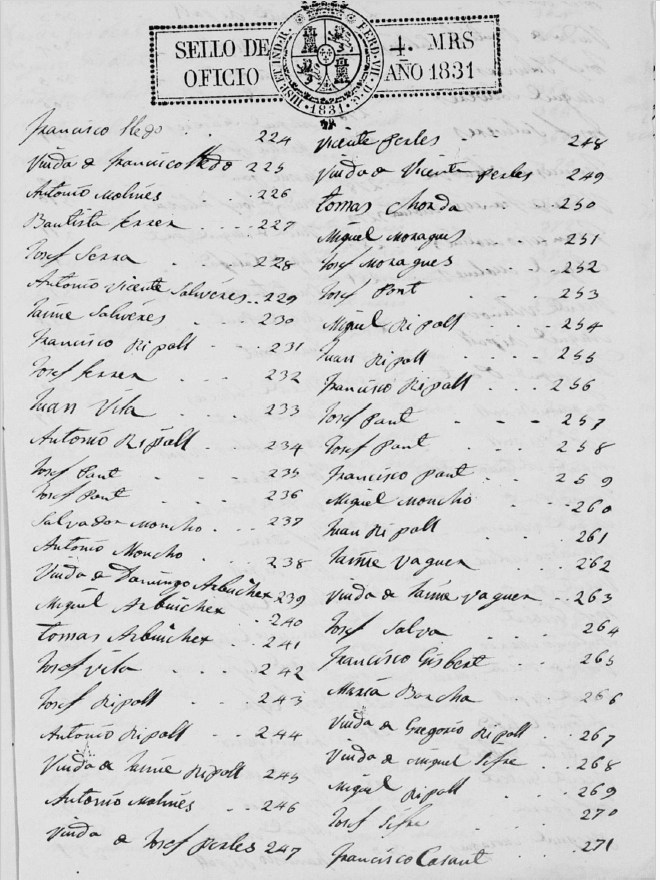 SELLO DE OFICIO
4. MRS AÑO 1831
HISP. ET IND. R. FERD. VII. D. G. 1831
Francisco Lledo . . 224
Viuda de Francisco Lledo 225
Antonio Molines . . 226
Bautista Ferrer . . . 227
Josef Serra . . . 228
Antonio Vicente Salvères . . 229
Jaime Salvères . . . 230
Francisco Ripoll . . 231
Josef Ferrer . . . 232
Juan Vila . . . 233
Antonio Ripoll . . . 234
Josef Pont . . . 235
Josef Pont . . . 236
Salvador Moncho . . . 237
Antonio Moncho . . 238
Viuda de Domingo Arbuixer 239
Miguel Arbuixer . . 240
Tomas Arbuixer . . 241
Josef Vila . . . 242
Josef Ripoll . . . 243
Antonio Ripoll . . . 244
Viuda de Jaime Ripoll 245
Antonio Molines . . 246
Viuda de Josef Perles 247
Vicente Perles . . 248
Viuda de Vicente Perles 249
Tomas . . 250
Miguel Moragues . . . 251
Josef Moragues . . . 252
Josef Pont . . . 253
Miguel Ripoll . . . 254
Juan Ripoll . . . 255
Francisco Ripoll . . . 256
Josef Pont . . . 257
Josef Pont . . . 258
Francisco Pont . . . 259
Miguel Moncho . . . 260
Juan Ripoll . . . 261
Jaime Vaquer . . . 262
Viuda de Jaime Vaquer . . 263
Josef Salva . . . 264
Francisco Gisbert . . 265
Maria . . . 266
Viuda de Gregorio Ripoll . . 267
Viuda de Miguel Sifre . . 268
Miguel Ripoll . . 269
Josef Sifre . . . 270
Francisco . . 271